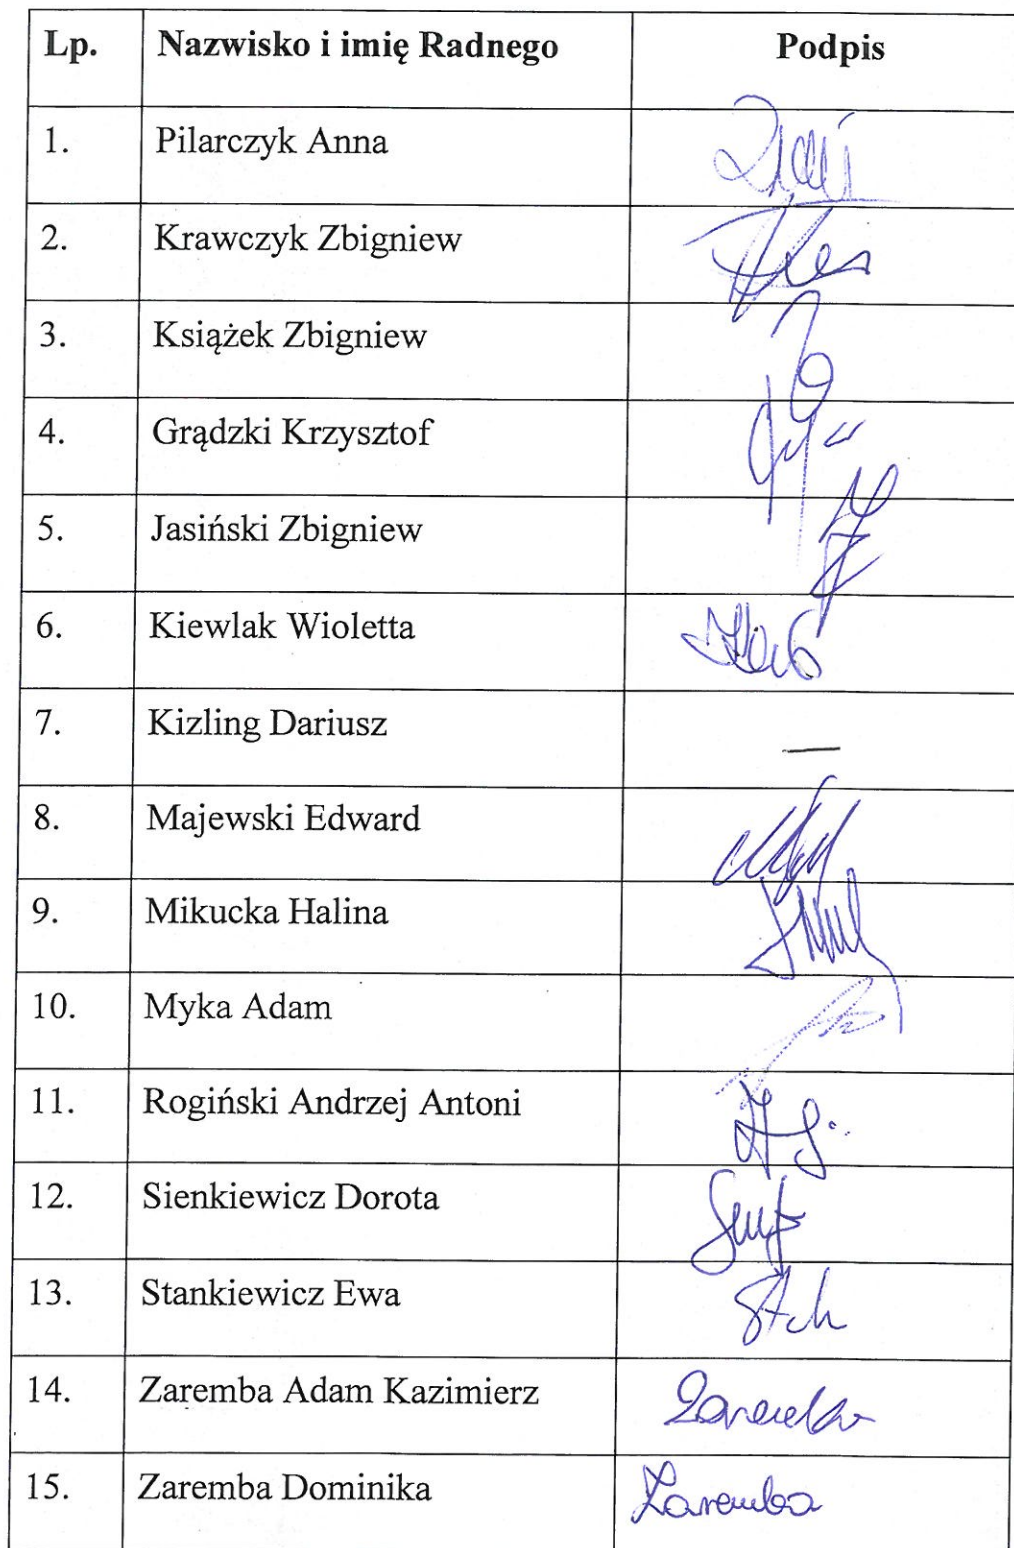 Lp. Nazwisko i imię Radnego Podpis
1. Pilarczyk Anna
2. Krawczyk Zbigniew
3. Książek Zbigniew
4. Grądzki Krzysztof
5. Jasiński Zbigniew
6. Kiewlak Wioletta
7. Kizling Dariusz —
8. Majewski Edward
9. Mikucka Halina
10. Myka Adam
11. Rogiński Andrzej Antoni
12. Sienkiewicz Dorota
13. Stankiewicz Ewa
14. Zaremba Adam Kazimierz
15. Zaremba Dominika Zaremba